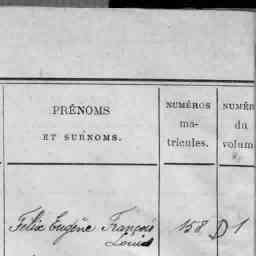 PRÉNOMS
ET SURNOMS.
NUMÉROS
ma-
tricules.
NUMÉR
du
volum
Félix Eugène François
Louis
158 D 1